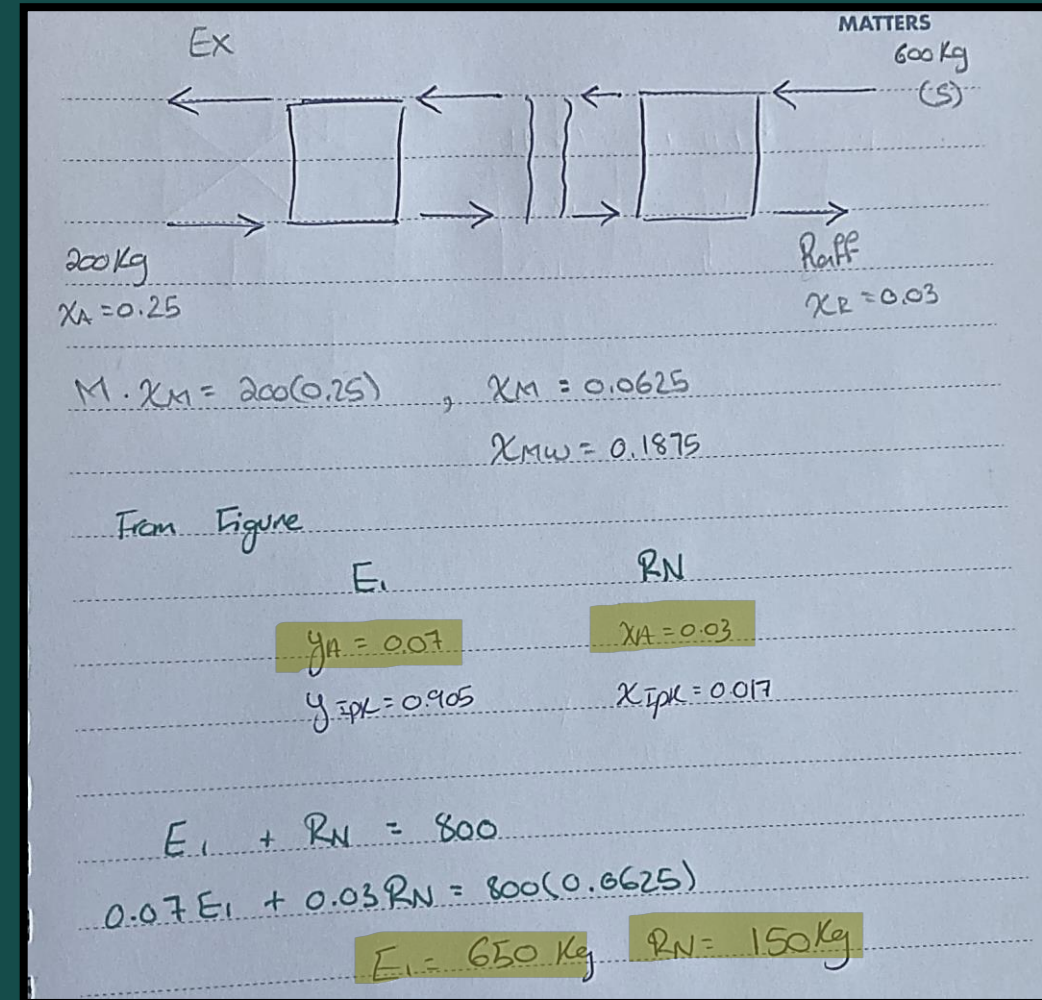 MATTERS
Ex
600 Kg
(S)
200 Kg
Raff
xA = 0.25
xR = 0.03
M . xM = 200(0.25) , xM = 0.0625
xMW = 0.1875
From Figure
E1 RN
yA = 0.07 xA = 0.03
yIPK = 0.905 xIPK = 0.017
E1 + RN = 800
0.07 E1 + 0.03 RN = 800(0.0625)
E1 = 650 Kg RN = 150 Kg